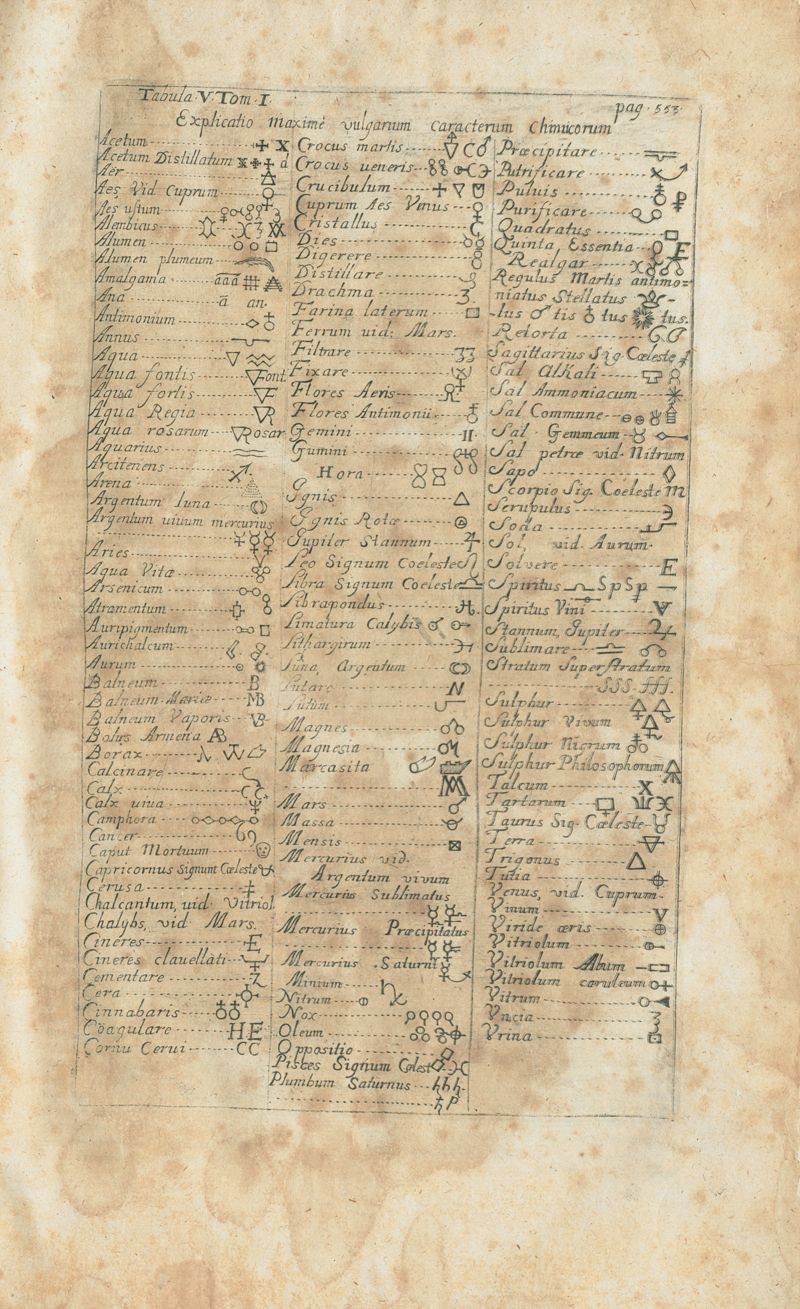 Tabula V. Tom. I.
pag. 553.
Explicatio maximè vulgarium caracterum Chimicorum
Acetum
Acetum Distillatum
Aer
Aes Vid Cuprum
Aes ustum
Alembicus
Alumen
Alumen plumeum
Amalgama aaa
Ana ā an.
Antimonium
Annus
Aqua
Aqua fontis Font
Aqua fortis
Aqua Regia
Aqua rosarum Rosar
Aquarius
Arcitenens
Arena
Argentum luna
Argentum uiuum mercurius
Aries
Aqua Vitæ
Arsenicum
Atramentum
Auripigmentum
Aurichalcum
Aurum
Balneum B
Balneum Mariæ MB
Balneum Vaporis VB
Bolus Armena AB
Borax
Calcinare
Calx
Calx uiua
Camphora
Cancer
Caput Mortuum
Capricornus Signum Cœleste
Cerusa
Chalcantum, uid. Vitriol
Chalybs, vid Mars
Cineres E
Cineres clauellati
Cementare
Cera
Cinnabaris
Coagulare HE
Cornu Cerui CC
Crocus martis
Crocus ueneris
Crucibulum
Cuprum Aes Venus
Cristallus
Dies
Digerere
Distillare
Drachma
Farina laterum
Ferrum uid: Mars.
Filtrare
Fixare
Flores Aeris
Flores Antimonii
Gemini
Gumini
Hora
Ignis
Ignis Rotæ
Jupiter Stannum
Leo Signum Coeleste
Libra Signum Coeleste
Librapondus
Limatura Calybis
Lithargirum
Luna, Argentum
Lutare
Lutum
Magnes
Magnesia
Marcasita
Mars
Massa
Mensis
Mercurius vid.
Argentum vivum
Mercurius Sublimatus
Mercurius Præcipitatus
Mercurius Saturni
Minium
Nitrum
Nox
Oleum
Oppositio
Pisces Signum Cœlest
Plumbum Saturnus
Præcipitare
Putrificare
Puluis
Purificare
Quadratus
Quinta, Essentia
Realgar
Regulus Martis antimo=
niatus Stellatus
lus ♂ tis ♁ tus tus.
Retorta
Sagittarius Sig Cœleste
Sal Alkali
Sal Ammoniacum
Sal Commune
Sal Gemmeum
Sal petræ vid. Nitrum
Sapo
Scorpio Sig. Coeleste
Scrupulus
Soda
Sol, uid. Aurum.
Solvere E
Spiritus Sp Sp
Spiritus Vini
Stannum, Jupiter
Sublimare
Stratum Superstratum
SSS. fff.
Sulphur
Sulphur Vivum
Sulphur Nigrum
Sulphur Philosophorum
Talcum X
Tartarum
Taurus Sig. Cœleste
Terra
Trigonus
Tutia
Venus, vid. Cuprum.
Vinum V
Viride æris
Vitriolum
Vitriolum Album
Vitriolum cæruleum
Vitrum
Vncia
Vrina